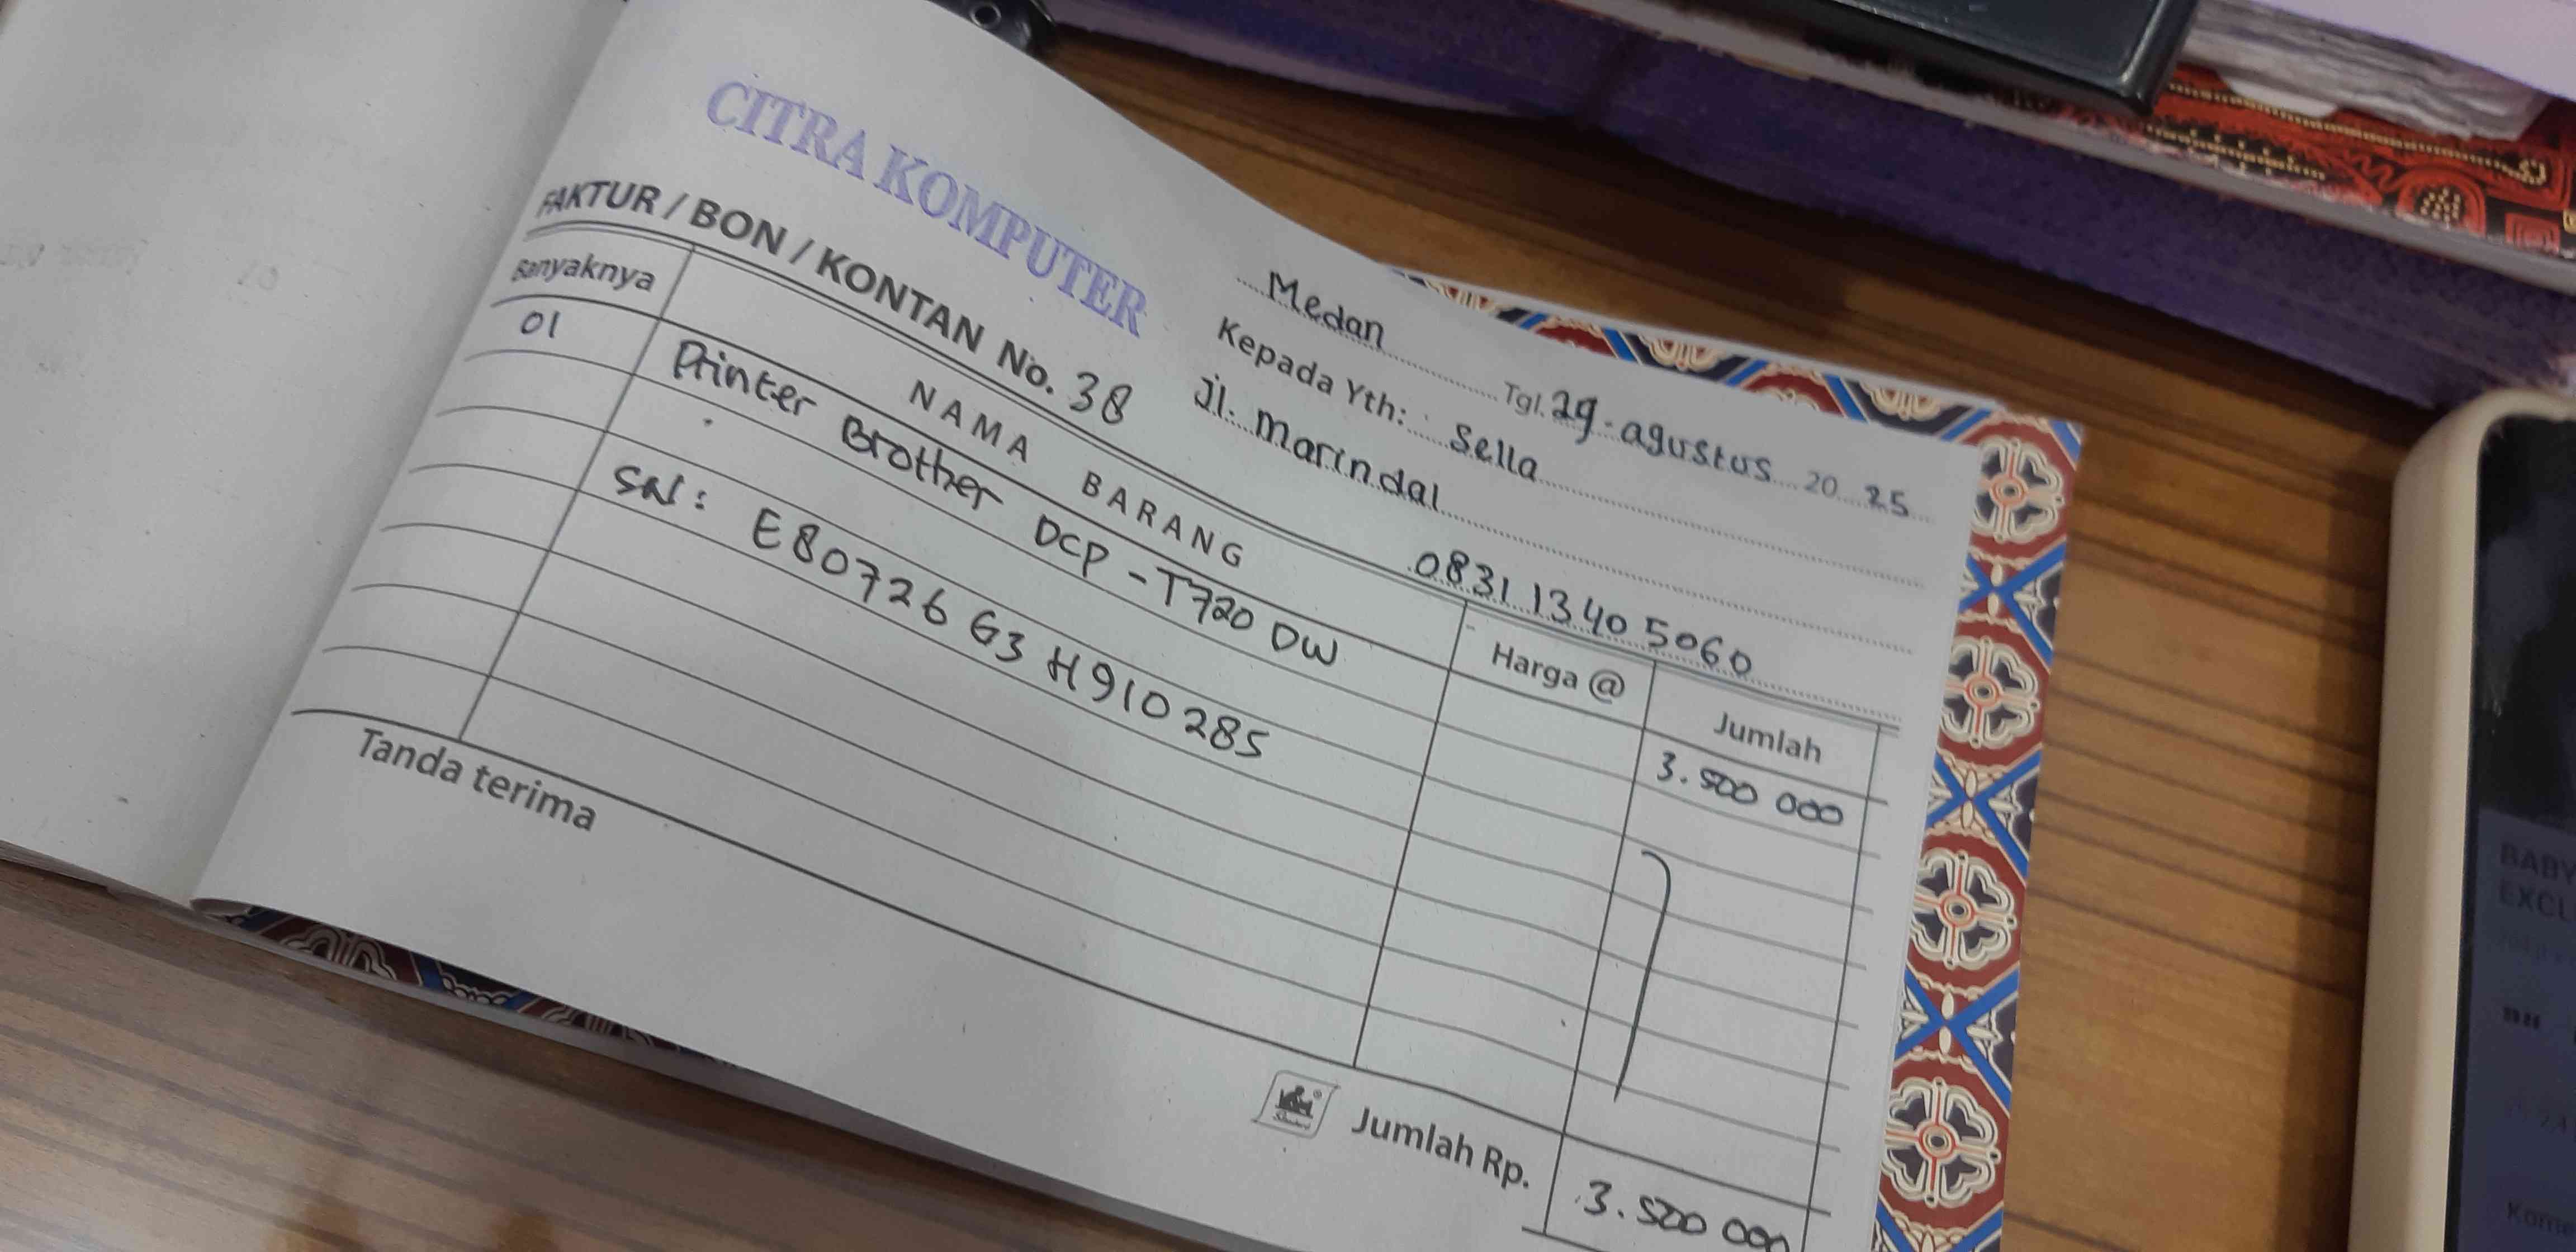 CITRA KOMPUTER
Medan Tgl. 29 - agustus 20 25
Kepada Yth: Sella
Jl. Marindal
0831 1340 5060
FAKTUR / BON / KONTAN No. 38
Banyaknya NAMA BARANG Harga @ Jumlah
01 Printer Brother DCP - T720 DW 3.500 000
SN : E80726 G3 H910285
Tanda terima
Jumlah Rp. 3.500 000
BABY
EXCL